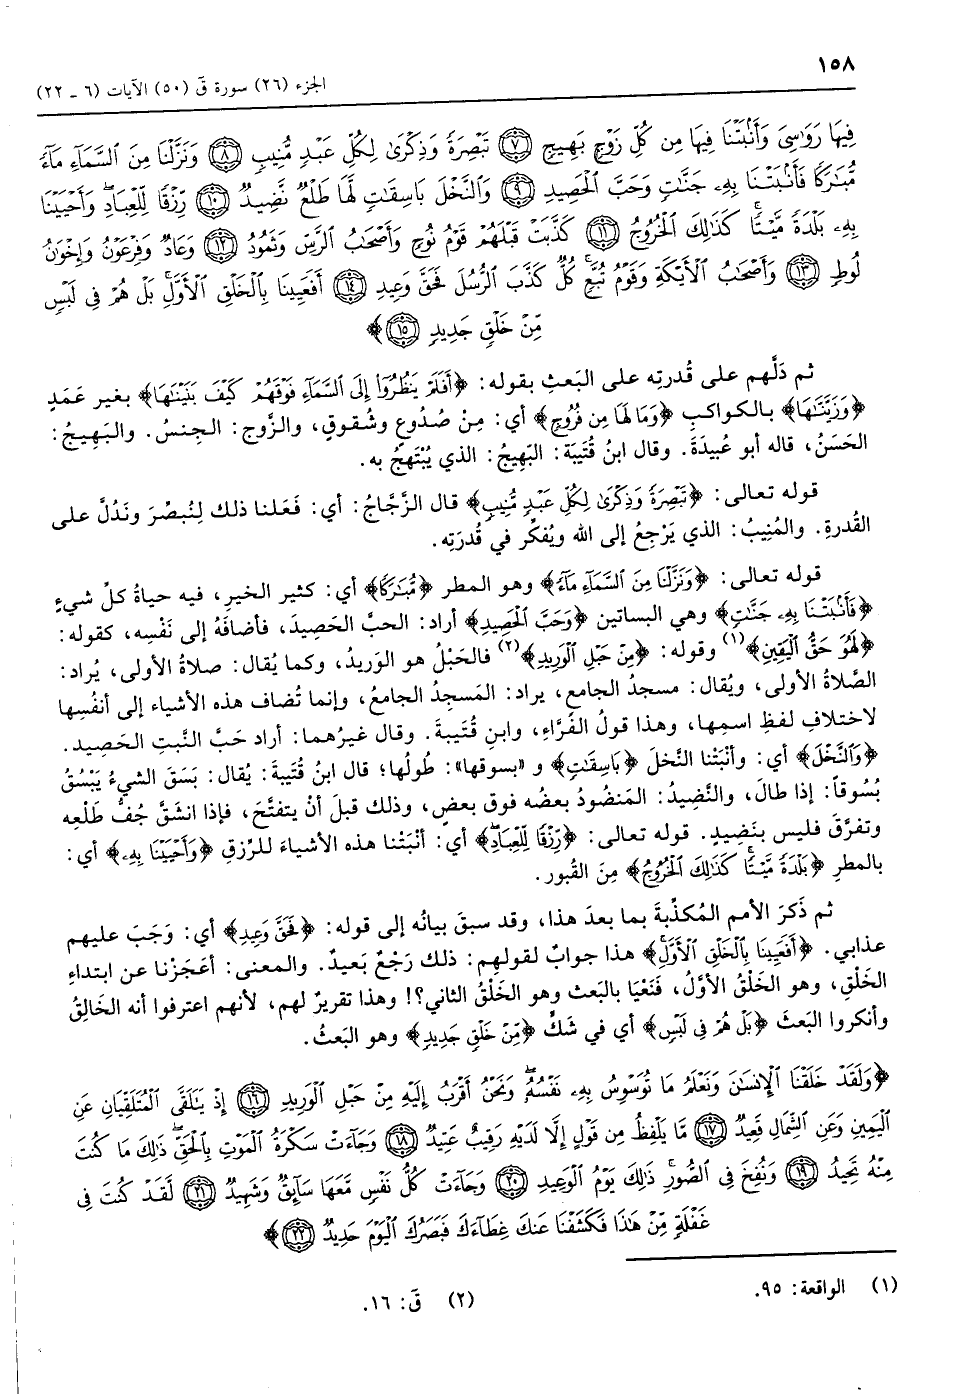 ١٥٨
الجزء (٢٦) سورة قَ (٥٠) الآيات (٦ ـ ٢٢)
فِيهَا رَوَٰسِىَ وَأَنۢبَتْنَا فِيهَا مِن كُلِّ زَوْجٍۭ بَهِيجٍ ﴿٧﴾ تَبْصِرَةً وَذِكْرَىٰ لِكُلِّ عَبْدٍ مُّنِيبٍ ﴿٨﴾ وَنَزَّلْنَا مِنَ ٱلسَّمَآءِ مَآءً
مُّبَٰرَكًا فَأَنۢبَتْنَا بِهِۦ جَنَّٰتٍ وَحَبَّ ٱلْحَصِيدِ ﴿٩﴾ وَٱلنَّخْلَ بَاسِقَٰتٍ لَّهَا طَلْعٌ نَّضِيدٌ ﴿١٠﴾ رِّزْقًا لِّلْعِبَادِ ۖ وَأَحْيَيْنَا
بِهِۦ بَلْدَةً مَّيْتًا ۚ كَذَٰلِكَ ٱلْخُرُوجُ ﴿١١﴾ كَذَّبَتْ قَبْلَهُمْ قَوْمُ نُوحٍ وَأَصْحَٰبُ ٱلرَّسِّ وَثَمُودُ ﴿١٢﴾ وَعَادٌ وَفِرْعَوْنُ وَإِخْوَٰنُ
لُوطٍ ﴿١٣﴾ وَأَصْحَٰبُ ٱلْأَيْكَةِ وَقَوْمُ تُبَّعٍ ۚ كُلٌّ كَذَّبَ ٱلرُّسُلَ فَحَقَّ وَعِيدِ ﴿١٤﴾ أَفَعَيِينَا بِٱلْخَلْقِ ٱلْأَوَّلِ ۚ بَلْ هُمْ فِى لَبْسٍ
مِّنْ خَلْقٍ جَدِيدٍ ﴿١٥﴾﴾
ثم دَلَّهم على قُدرتِه على البَعثِ بقوله: ﴿أَفَلَمْ يَنظُرُوٓا۟ إِلَى ٱلسَّمَآءِ فَوْقَهُمْ كَيْفَ بَنَيْنَٰهَا﴾ بغير عَمَدٍ
﴿وَزَيَّنَّٰهَا﴾ بالكواكبِ ﴿وَمَا لَهَا مِن فُرُوجٍ﴾ أي: مِنْ صُدُوعٍ وشُقوقٍ، والزَّوج: الجِنسُ. والبَهِيجُ:
الحَسَنُ، قاله أبو عبيدَة. وقال ابنُ قُتَيبَة: البَهِيجُ: الذي يُبْتَهجُ به.
قوله تعالى: ﴿تَبْصِرَةً وَذِكْرَىٰ لِكُلِّ عَبْدٍ مُّنِيبٍ﴾ قال الزَّجَّاجُ: أي: فَعَلنا ذلك لِنُبصِّرَ ونَدُلَّ على
القُدرةِ. والمُنِيبُ: الذي يَرْجِعُ إلى الله ويُفكِّر في قُدرَتِه.
قوله تعالى: ﴿وَنَزَّلْنَا مِنَ ٱلسَّمَآءِ مَآءً﴾ وهو المطر ﴿مُّبَٰرَكًا﴾ أي: كثير الخيرِ، فيه حياةُ كلِّ شيءٍ
﴿فَأَنۢبَتْنَا بِهِۦ جَنَّٰتٍ﴾ وهي البساتين ﴿وَحَبَّ ٱلْحَصِيدِ﴾ أراد: الحبَّ الحَصِيدَ، فأضافَهُ إلى نَفْسِه، كقوله:
﴿لَهُوَ حَقُّ ٱلْيَقِينِ﴾(١) وقوله: ﴿مِنْ حَبْلِ ٱلْوَرِيدِ﴾(٢) فالحَبْلُ هو الوَريدُ، وكما يُقال: صلاةُ الأولى، يُراد:
الصَّلاةُ الأولى، ويُقال: مسجدُ الجامعِ، يراد: المَسجدُ الجامعُ، وإنما تُضاف هذه الأشياء إلى أنفُسِها
لاختلافِ لفظِ اسمِها، وهذا قولُ الفَرَّاءِ، وابنِ قُتَيبَة. وقال غيرُهما: أراد حَبَّ النَّبتِ الحَصِيد.
﴿وَٱلنَّخْلَ﴾ أي: وأنْبَتْنا النَّخلَ ﴿بَاسِقَٰتٍ﴾ و «بسوقها»: طُولُها؛ قال ابنُ قُتَيبَة: يُقال: بَسَقَ الشيءُ يَبْسُقُ
بُسُوقاً: إذا طالَ، والنَّضِيدُ: المَنضُودُ بعضُه فوق بعضٍ، وذلك قبلَ أنْ يتفتَّحَ، فإذا انشَقَّ جُفُّ طَلْعِه
وتفرَّقَ فليس بنَضِيدٍ. قوله تعالى: ﴿رِّزْقًا لِّلْعِبَادِ ۖ﴾ أي: أنْبَتْنا هذه الأشياءَ للرِّزقِ ﴿وَأَحْيَيْنَا بِهِۦ﴾ أي:
بالمطرِ ﴿بَلْدَةً مَّيْتًا ۚ كَذَٰلِكَ ٱلْخُرُوجُ﴾ مِنَ القُبور.
ثم ذَكرَ الأمم المُكذِّبةَ بما بعدَ هذا، وقد سبقَ بيانُه إلى قوله: ﴿فَحَقَّ وَعِيدِ﴾ أي: وَجَبَ عليهم
عذابي. ﴿أَفَعَيِينَا بِٱلْخَلْقِ ٱلْأَوَّلِ ۚ﴾ هذا جوابٌ لقولهِم: ذلك رَجْعٌ بَعيدٌ. والمعنى: أعَجَزْنا عن ابتداءِ
الخَلْقِ، وهو الخَلْقُ الأوَّلُ، فَنَعْيَا بالبَعث وهو الخَلْقُ الثاني؟! وهذا تقريرٌ لهم، لأنهم اعترفوا أنه الخَالِقُ
وأنكروا البَعثَ ﴿بَلْ هُمْ فِى لَبْسٍ﴾ أي في شَكٍّ ﴿مِّنْ خَلْقٍ جَدِيدٍ﴾ وهو البَعثُ.
﴿وَلَقَدْ خَلَقْنَا ٱلْإِنسَٰنَ وَنَعْلَمُ مَا تُوَسْوِسُ بِهِۦ نَفْسُهُۥ ۖ وَنَحْنُ أَقْرَبُ إِلَيْهِ مِنْ حَبْلِ ٱلْوَرِيدِ ﴿١٦﴾ إِذْ يَتَلَقَّى ٱلْمُتَلَقِّيَانِ عَنِ
ٱلْيَمِينِ وَعَنِ ٱلشِّمَالِ قَعِيدٌ ﴿١٧﴾ مَّا يَلْفِظُ مِن قَوْلٍ إِلَّا لَدَيْهِ رَقِيبٌ عَتِيدٌ ﴿١٨﴾ وَجَآءَتْ سَكْرَةُ ٱلْمَوْتِ بِٱلْحَقِّ ۖ ذَٰلِكَ مَا كُنتَ
مِنْهُ تَحِيدُ ﴿١٩﴾ وَنُفِخَ فِى ٱلصُّورِ ۚ ذَٰلِكَ يَوْمُ ٱلْوَعِيدِ ﴿٢٠﴾ وَجَآءَتْ كُلُّ نَفْسٍ مَّعَهَا سَآئِقٌ وَشَهِيدٌ ﴿٢١﴾ لَّقَدْ كُنتَ فِى
غَفْلَةٍ مِّنْ هَٰذَا فَكَشَفْنَا عَنكَ غِطَآءَكَ فَبَصَرُكَ ٱلْيَوْمَ حَدِيدٌ ﴿٢٢﴾﴾
(١) الواقعة: ٩٥. (٢) قَ: ١٦.